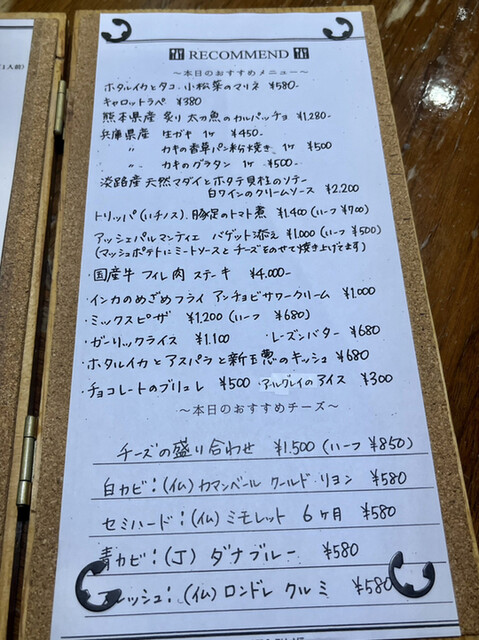 (1人前)
RECOMMEND
～本日のおすすめメニュー～
ホタルイカとタコ、小松菜のマリネ ¥580-
キャロットラペ ¥380
熊本県産 炙り太刀魚のカルパッチョ ¥1,280-
兵庫県産 生ガキ 1ケ ¥450-
〃 カキの香草パン粉焼き 1ケ ¥500
〃 カキのグラタン 1ケ ¥500-
淡路産 天然マダイとホタテ貝柱のソテー
白ワインのクリームソース ¥2,200
トリッパ(ハチノス)、豚足のトマト煮 ¥1,400 (ハーフ ¥700)
アッシェパルマンティエ バゲット添え ¥1,000 (ハーフ ¥500)
(マッシュポテトにミートソースとチーズをのせて焼き上げてます)
・国産牛 フィレ肉 ステーキ ¥4,000-
・インカのめざめフライ アンチョビサワークリーム ¥1,000
・ミックスピザ ¥1,200 (ハーフ ¥680)
・ガーリックライス ¥1,100 ・レーズンバター ¥680
・ホタルイカとアスパラと新玉葱のキッシュ ¥680
・チョコレートのブリュレ ¥500 ・アールグレイのアイス ¥300
～本日のおすすめチーズ～
チーズの盛り合わせ ¥1,500 (ハーフ ¥850)
白カビ:(仏)カマンベール クールド・リヨン ¥580
セミハード:(仏)ミモレット 6ヶ月 ¥580
青カビ:(J)ダナブルー ¥580
レッシュ:(仏)ロンドレ クルミ ¥580